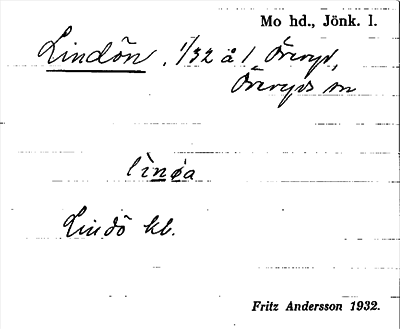 Mo hd., Jönk. l.
Lindön, 1/32 å 1 Öreryd,
Öreryds sn
lìnøa
Lindö kb.
Fritz Andersson 1932.